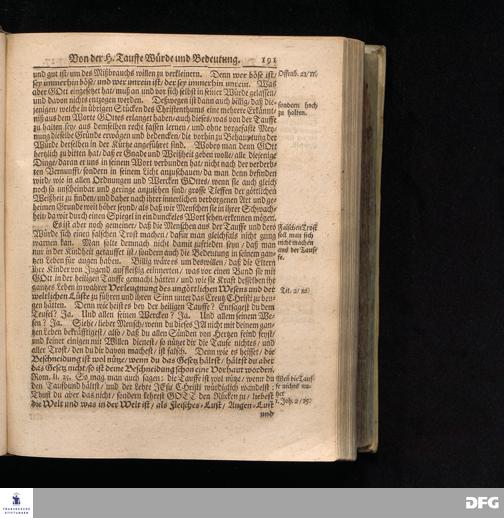 Von der H. Tauffe Würde und Bedeutung. 191
und gut ist/ um des Mißbrauchs willen zu verkleinern. Denn wer böse ist/
sey immerhin böse/ und wer unrein ist/ der sey immerhin unrein. Was
aber GOtt eingesetzet hat/ muß an und vor sich selbst in seiner Würde gelassen/
und davon nichts entzogen werden. Deßwegen ist dann auch billig/ daß die-
jenigen/ welche in übrigen Stücken des Christenthums eine mehrere Erkännt-
niß aus dem Worte GOttes erlanget haben/ auch dieses/ was von der Tauffe
zu halten sey/ aus demselben recht fassen lernen/ und ohne vorgefaßte Mey-
nung dieselbe Gründe erwägen und bedencken/ die vorhin zu Behauptung der
Würde derselben in der Kürtze angeführet sind. Wobey man denn GOtt
hertzlich zu bitten hat/ daß er Gnade und Weißheit geben wolle/ alle diejenige
Dinge/ daran er uns in seinem Wort verbunden hat/ nicht nach der verderb-
ten Vernunfft/ sondern in seinem Licht anzuschauen/ da man denn befinden
wird/ wie in allen Ordnungen und Wercken GOttes/ wenn sie auch gleich
noch so unscheinbar und geringe anzusehen sind/ grosse Tieffen der göttlichen
Weißheit zu finden/ und daher nach ihrer innerlichen verborgenen Art und ge-
heimen Grunde weit höher seynd/ als daß wir Menschen sie in ihrer Schwach-
heit/ da wir durch einen Spiegel in ein dunckeles Wort sehen/ erkennen mögen.
Es ist aber noch gemeiner/ daß die Menschen aus der Tauffe und dero
Würde sich einen falschen Trost machen/ dafür man gleichfalls nicht gnug
warnen kan. Man solte demnach nicht damit zufrieden seyn/ daß man
nur in der Kindheit getauffet ist/ sondern auch die Bedeutung in seinem gan-
tzen Leben für augen haben. Billig wäre es um deswillen/ daß die Eltern
ihre Kinder von Jugend auf fleißig erinnerten/ was vor einen Bund sie mit
GOtt in der heiligen Tauffe gemacht hätten/ und wie sie Krafft desselben ihr
gantzes Leben in wahrer Verleugnung des ungöttlichen Wesens und der
weltlichen Lüste zu führen und ihren Sinn unter das Creutz Christi zu beu-
gen hätten. Denn wie heist es bey der heiligen Tauffe? Entsagest du dem
Teufel? Ja. Und allen seinen Wercken? Ja. Und allem seinem We-
sen? Ja. Siehe/ lieber Mensch/ wenn du dieses JA nicht mit deinem gan-
tzen Leben bekräfftigest/ also/ daß du allen Sünden von Hertzen feind seyst/
und keiner einigen mit Willen dienest/ so nützet dir die Taufe nichtes/ und
aller Trost/ den du dir davon machest/ ist falsch. Denn wie es heisset/ die
Beschneidung ist wol nütze/ wenn du das Gesetz hältst/ hältst du aber
das Gesetz nicht/ so ist deine Beschneidung schon eine Vorhaut worden.
Rom. II. 25. So mag man auch sagen: die Tauffe ist wol nütze/ wenn du
den Taufbund hältst/ und der Lehre JEsu Christi würdiglich wandelst:
Thust du aber das nicht/ sondern kehrest GOTT den Rücken zu/ liebest
die Welt und was in der Welt ist/ als Fleisches-Lust/ Augen-Lust
und
Offenb. 22/11.
sondern hoch
zu halten.
Falschen Trost
soll man sich
nicht machen
aus der Tauf-
fe.
Tit. 2/12.
Weil die Tauf-
fe nichts nu-
tzet
1. Joh. 2/15.
FRANCKESCHE
STIFTUNGEN
DFG